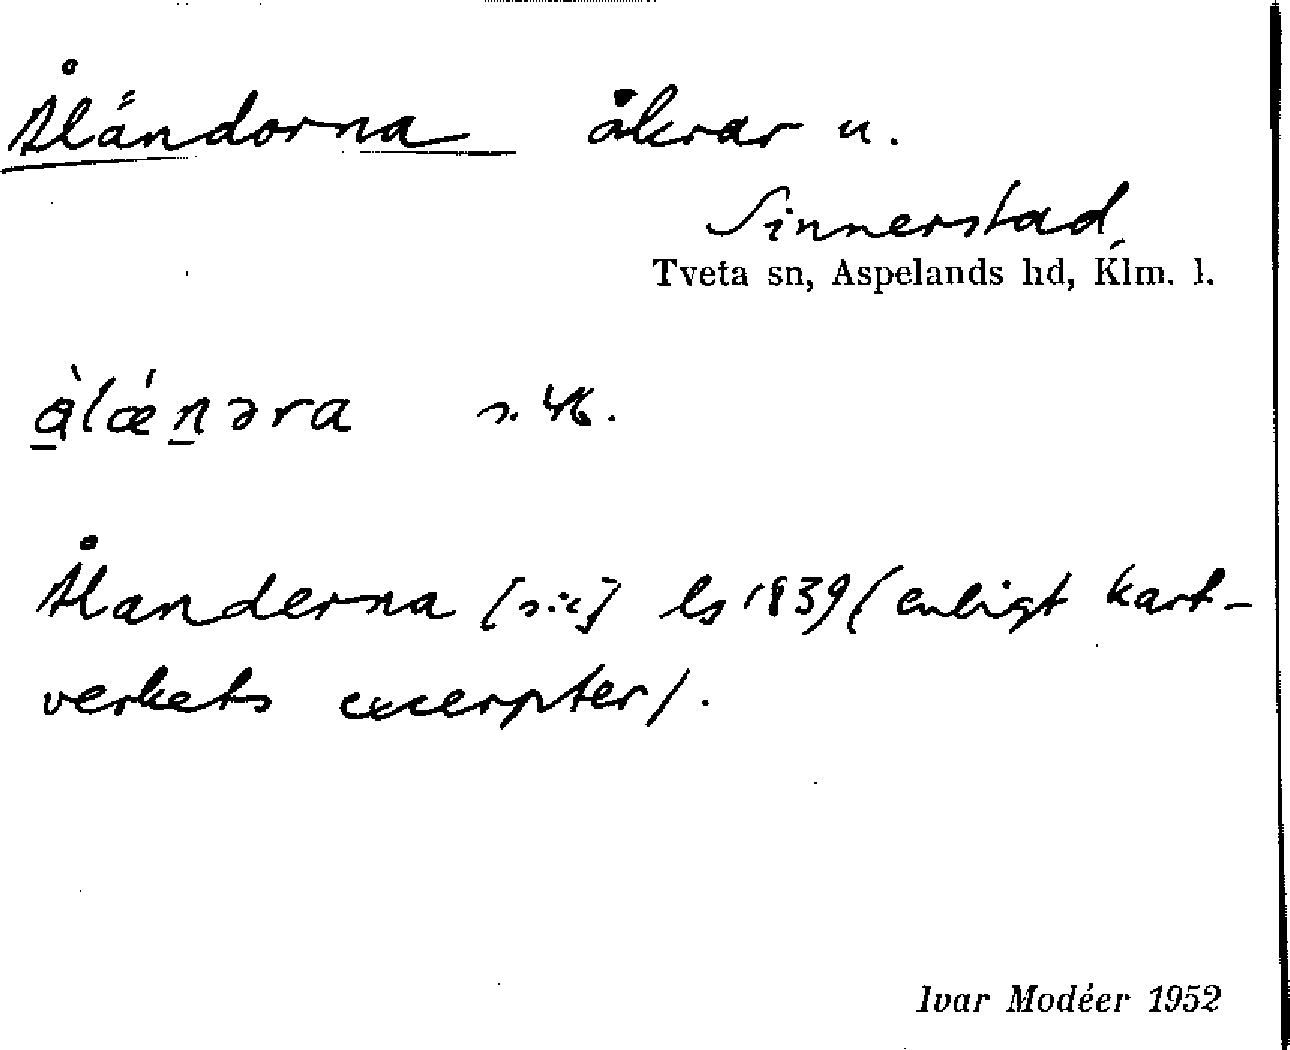 Åländorna åkrar u.
Sinnerstad,
Tveta sn, Aspelands hd, Klm. l.
à̱lǽṉəra s. 46.
Ålanderna [sic] ls 1839 (enligt kart-
verkets excerpter).
Ivar Modéer 1952